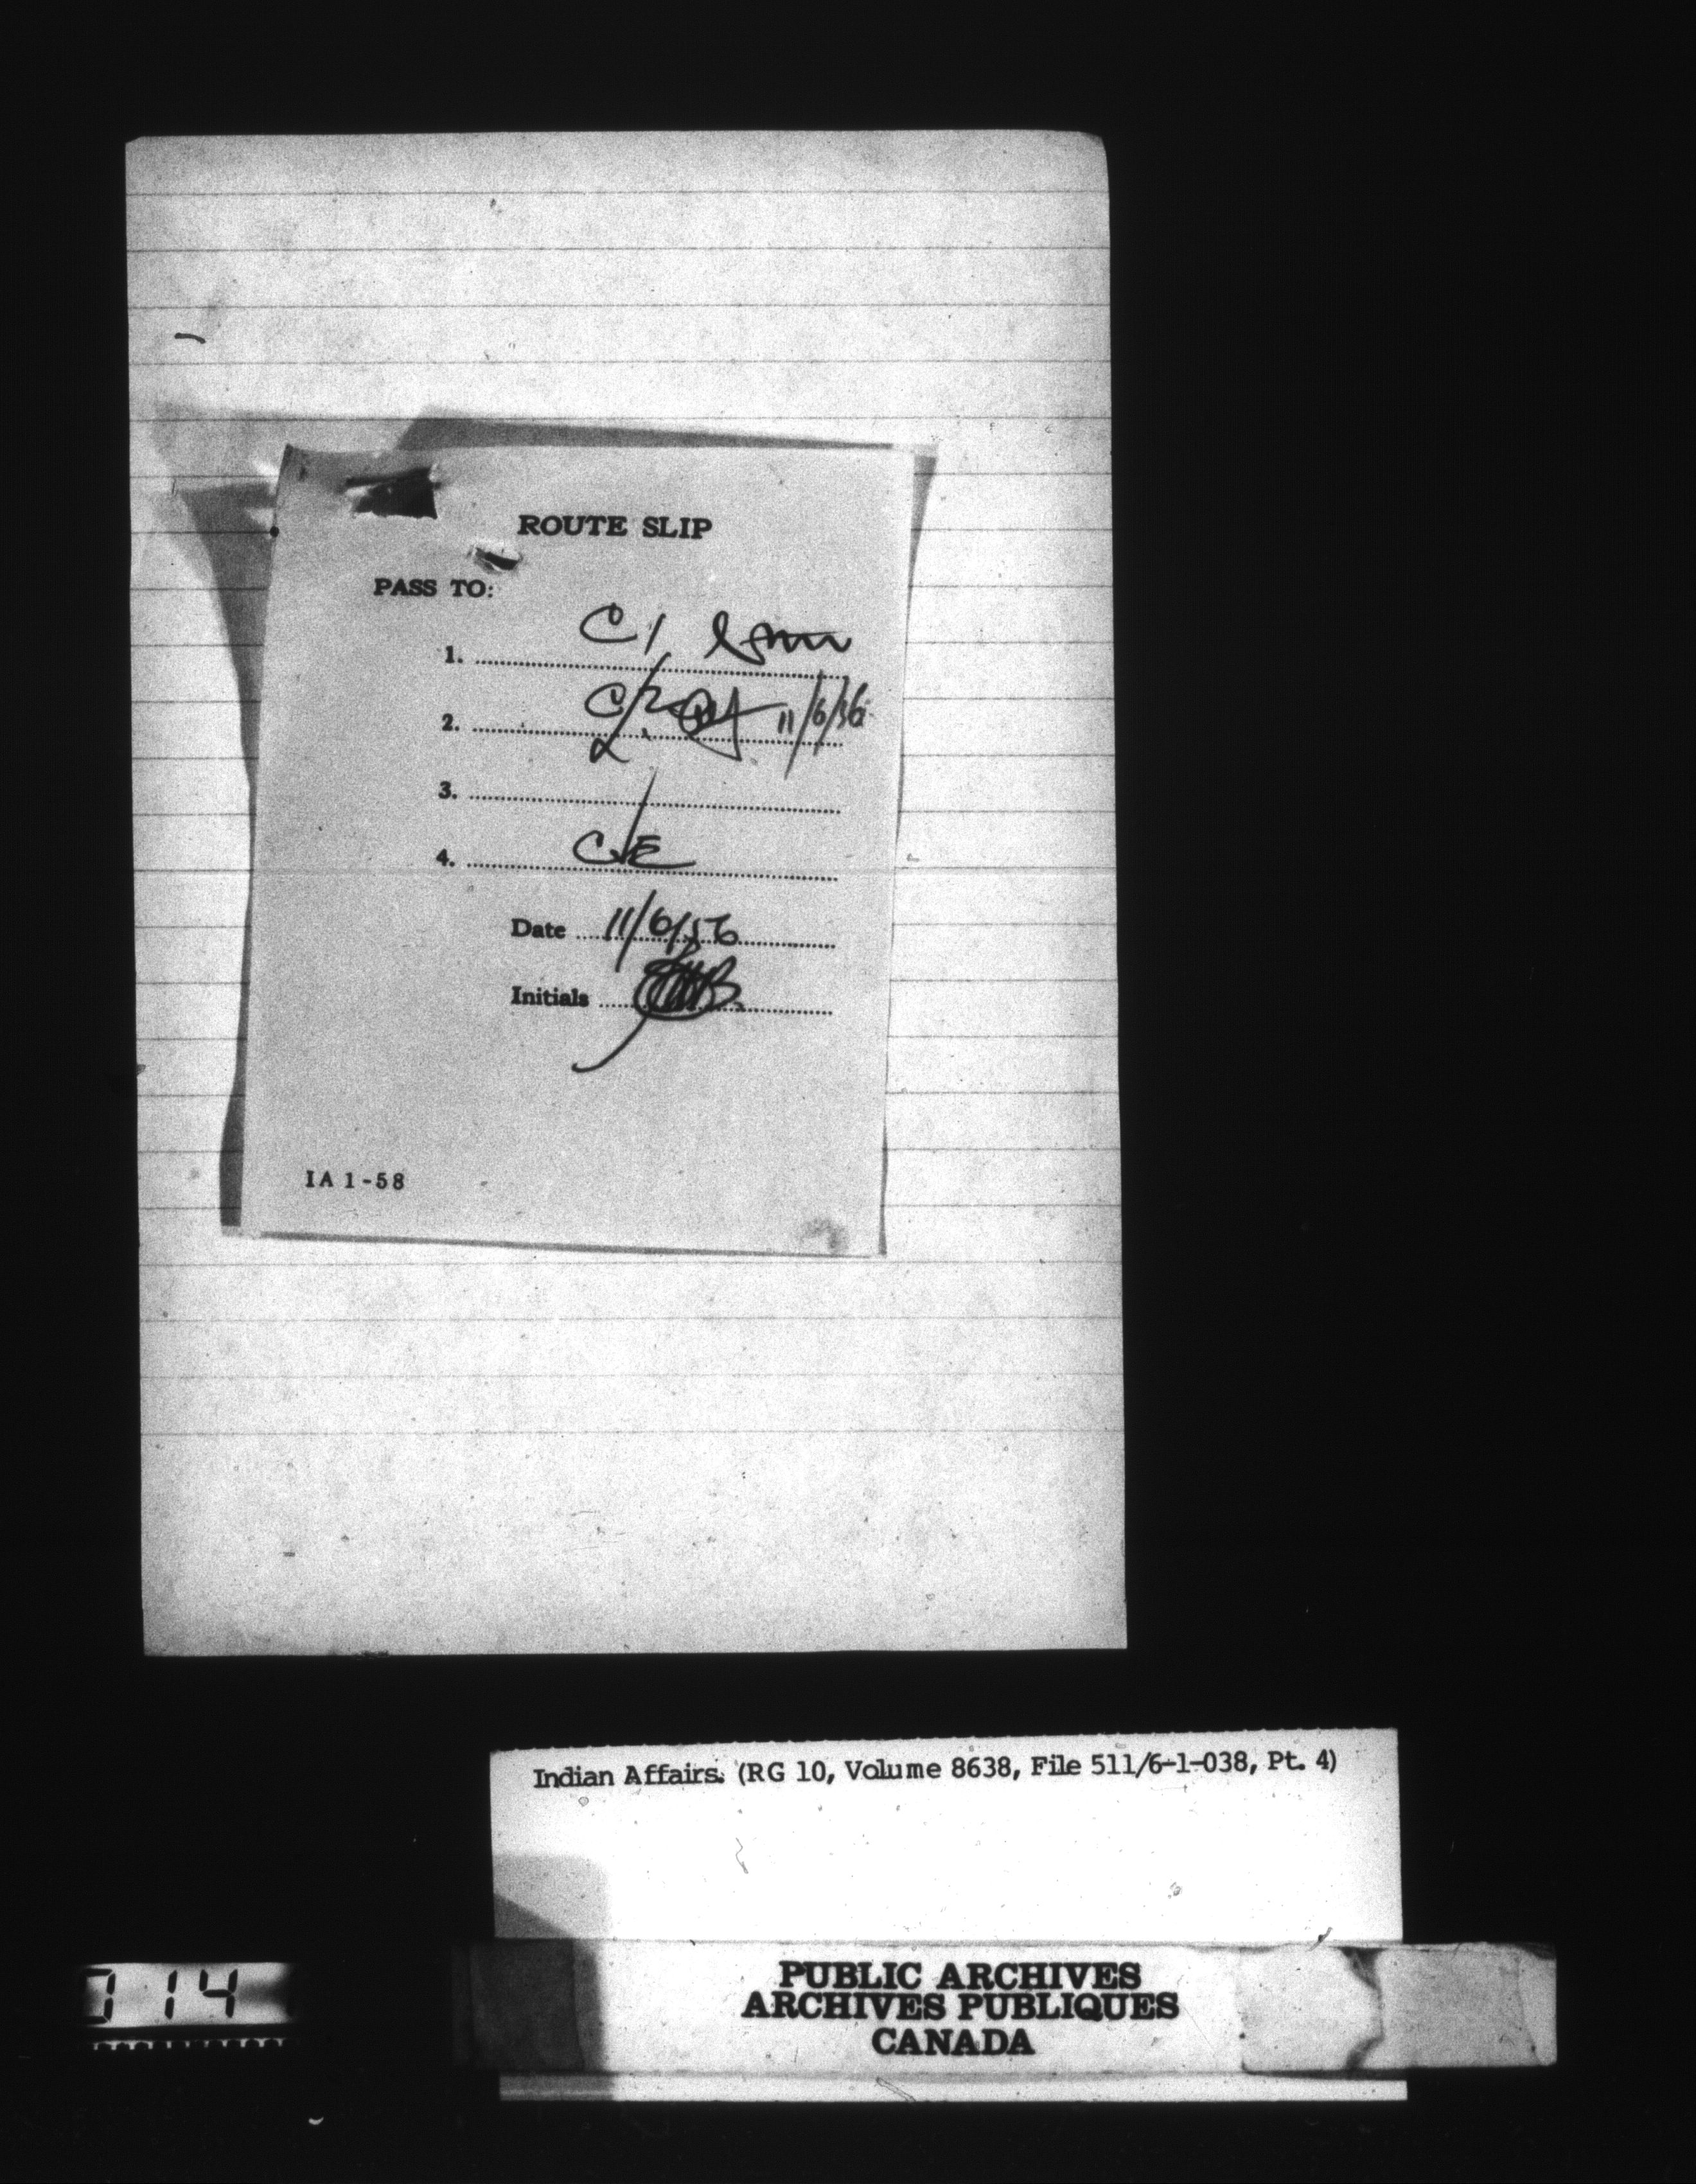 ROUTE SLIP
PASS TO:
1. C1
2. C/2 11/6/56
3.
4. CE
Date 11/6/56
Initials
IA 1-58
Indian Affairs. (RG 10, Volume 8638, File 511/6-1-038, Pt. 4)
014
PUBLIC ARCHIVES
ARCHIVES PUBLIQUES
CANADA